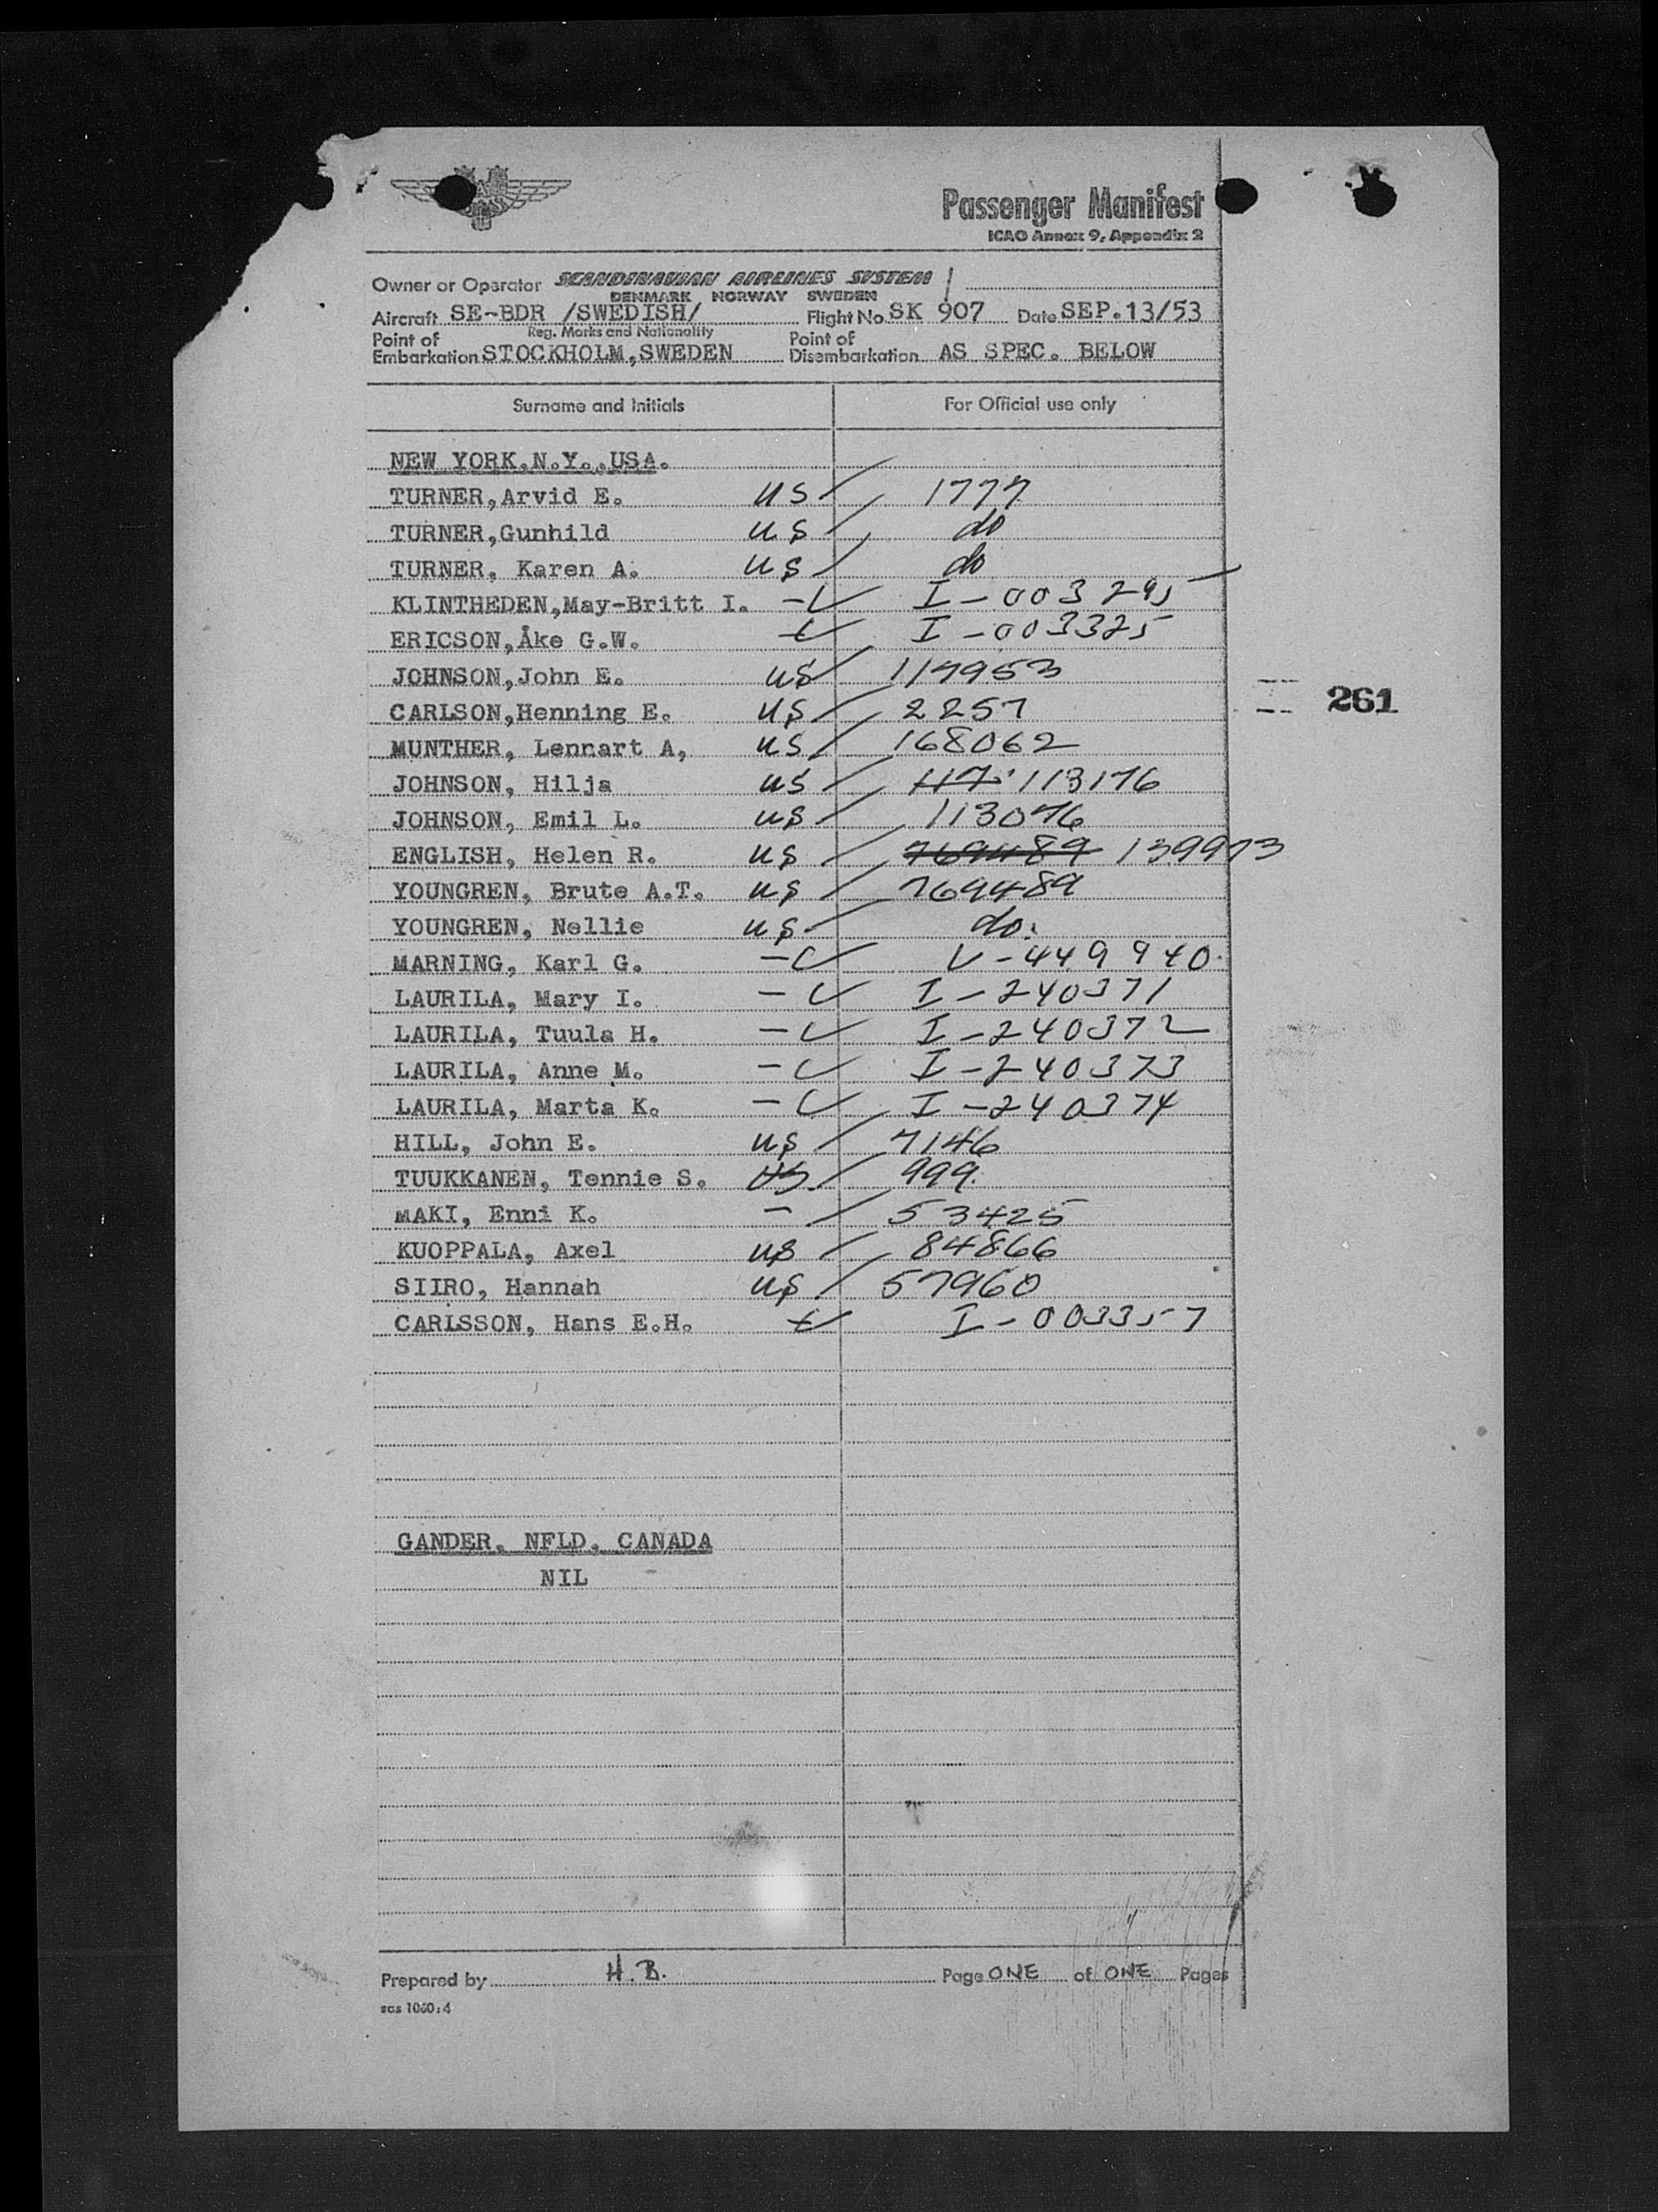 Passenger Manifest
ICAO Annex 9, Appendix 2
Owner or Operator SCANDINAVIAN AIRLINES SYSTEM
DENMARK NORWAY SWEDEN
Aircraft SE-BDR /SWEDISH/ Flight No. SK 907 Date SEP.13/53
Reg. Marks and Nationality
Point of Embarkation STOCKHOLM,SWEDEN Point of Disembarkation AS SPEC. BELOW
Surname and Initials For Official use only
NEW YORK.N.Y.,USA.
TURNER,Arvid E. US 1777
TURNER,Gunhild US do
TURNER, Karen A. US do
KLINTHEDEN,May-Britt I. I-003295
ERICSON,Åke G.W. I-003325
JOHNSON,John E. US 117953
CARLSON,Henning E. US 2257
261
MUNTHER, Lennart A, US 168062
JOHNSON, Hilja US 117 113176
JOHNSON, Emil L. US 113076
ENGLISH, Helen R. US 769489 139973
YOUNGREN, Brute A.T. US 769489
YOUNGREN, Nellie US do.
MARNING, Karl G. V-449940
LAURILA, Mary I. I-240371
LAURILA, Tuula H. I-240372
LAURILA, Anne M. I-240373
LAURILA, Marta K. I-240374
HILL, John E. US 7146
TUUKKANEN, Tennie S. US 999.
MAKI, Enni K. - 53425
KUOPPALA, Axel US 84866
SIIRO, Hannah US 57960
CARLSSON, Hans E.H. I-003357
GANDER. NFLD. CANADA
NIL
Prepared by H.B. Page ONE of ONE Pages
sas 1060:4